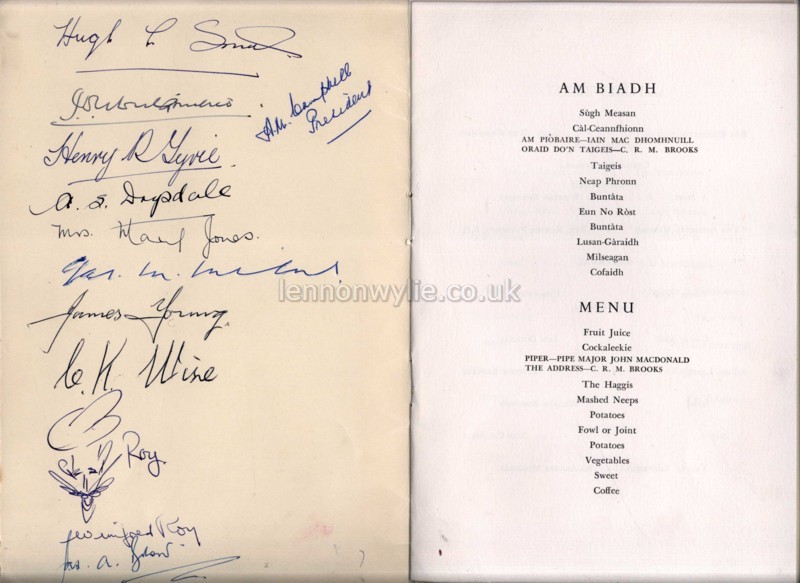 Hugh L
A.M. Campbell
President
Henry R Gyrie
A. S. Drysdale
Mrs. Jones.
James Young.
C. K. Wise
Roy.
Winifred Roy
A. Brow
lennonwylie.co.uk
AM BIADH
Sùgh Measan
Càl-Ceannfhionn
AM PÌOBAIRE—IAIN MAC DHOMHNUILL
ORAID DO'N TAIGEIS—C. R. M. BROOKS
Taigeis
Neap Phronn
Buntàta
Eun No Ròst
Buntàta
Lusan-Gàraidh
Milseagan
Cofaidh
MENU
Fruit Juice
Cockaleekie
PIPER—PIPE MAJOR JOHN MACDONALD
THE ADDRESS—C. R. M. BROOKS
The Haggis
Mashed Neeps
Potatoes
Fowl or Joint
Potatoes
Vegetables
Sweet
Coffee